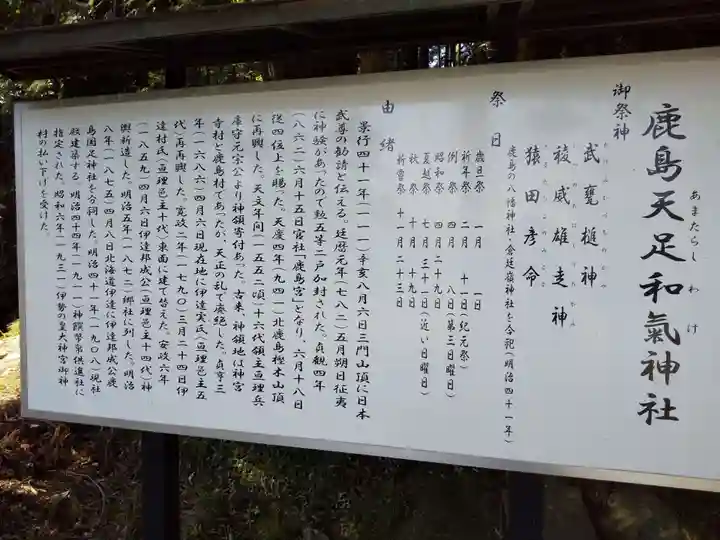 鹿島天足和氣神社
あまたらし わけ
御祭神
武甕槌神
稜威雄走神
猿田彦命
鹿島の八幡神社・倉庭嶺神社を合祀(明治四十一年)
祭日
歳旦祭 一月 一日
祈年祭 二月 十一日(紀元祭)
例祭 四月 八日(第三日曜日)
昭和祭 四月二十九日
夏越祭 七月三十一日(近い日曜日)
秋祭 十月 十九日
新嘗祭 十一月二十三日
由緒
景行四十一年(一一一)辛亥八月六日三門山頂に日本
武尊の勧請と伝える。延暦元年(七八二)五月朔日征夷
に神験があったので勲五等二戸加封された。貞観四年
(八六二)六月十五日官社「鹿島宮」となり、六月十八日
従四位上を賜った。天慶四年(九四一)北鹿島樫木山頂
に再興した。天文年間(一五五二頃)十六代領主亘理兵
庫守元宗公より神領寄付あった。古来、神領地は神宮
寺村と鹿島村であったが、天正の乱で廃絶した。貞享三
年(一六八六)四月六日現在地に伊達実氏(亘理邑主五
代)再再興した。寛政二年(一七九〇)三月二十四日伊
達村氏(亘理邑主十代)東面に建て替えた。安政六年
(一八五九)四月六日伊達邦成公(亘理邑主十四代)神
輿新造した。明治五年(一八七二)郷社に列した。明治
八年(一八七五)四月八日北海道伊達に伊達邦成公鹿
島国足神社を分祠した。明治四十一年(一九〇八)現社
殿建築する。明治四十四年(一九一一)神饌幣帛供進社に
指定された。昭和六年(一九三一)伊勢の皇大神宮御神
村の払い下げを受けた。